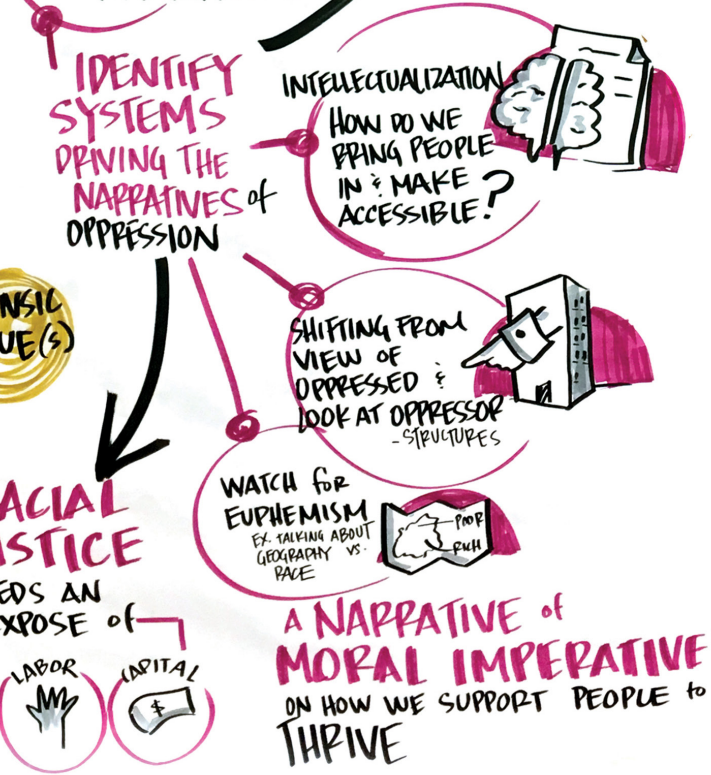 IDENTIFY
SYSTEMS
DRIVING THE
NARRATIVES of
OPPRESSION
INTELLECTUALIZATION
HOW DO WE
BRING PEOPLE
IN & MAKE
ACCESSIBLE?
SHIFTING FROM
VIEW OF
OPPRESSED &
LOOK AT OPPRESSOR
-STRUCTURES
WATCH for
EUPHEMISM
EX. TALKING ABOUT
GEOGRAPHY VS.
RACE
POOR
RICH
NSIC
UE(S)
ACIAL
STICE
EDS AN
XPOSE of
LABOR
CAPITAL
$
A NARRATIVE of
MORAL IMPERATIVE
ON HOW WE SUPPORT PEOPLE to
THRIVE